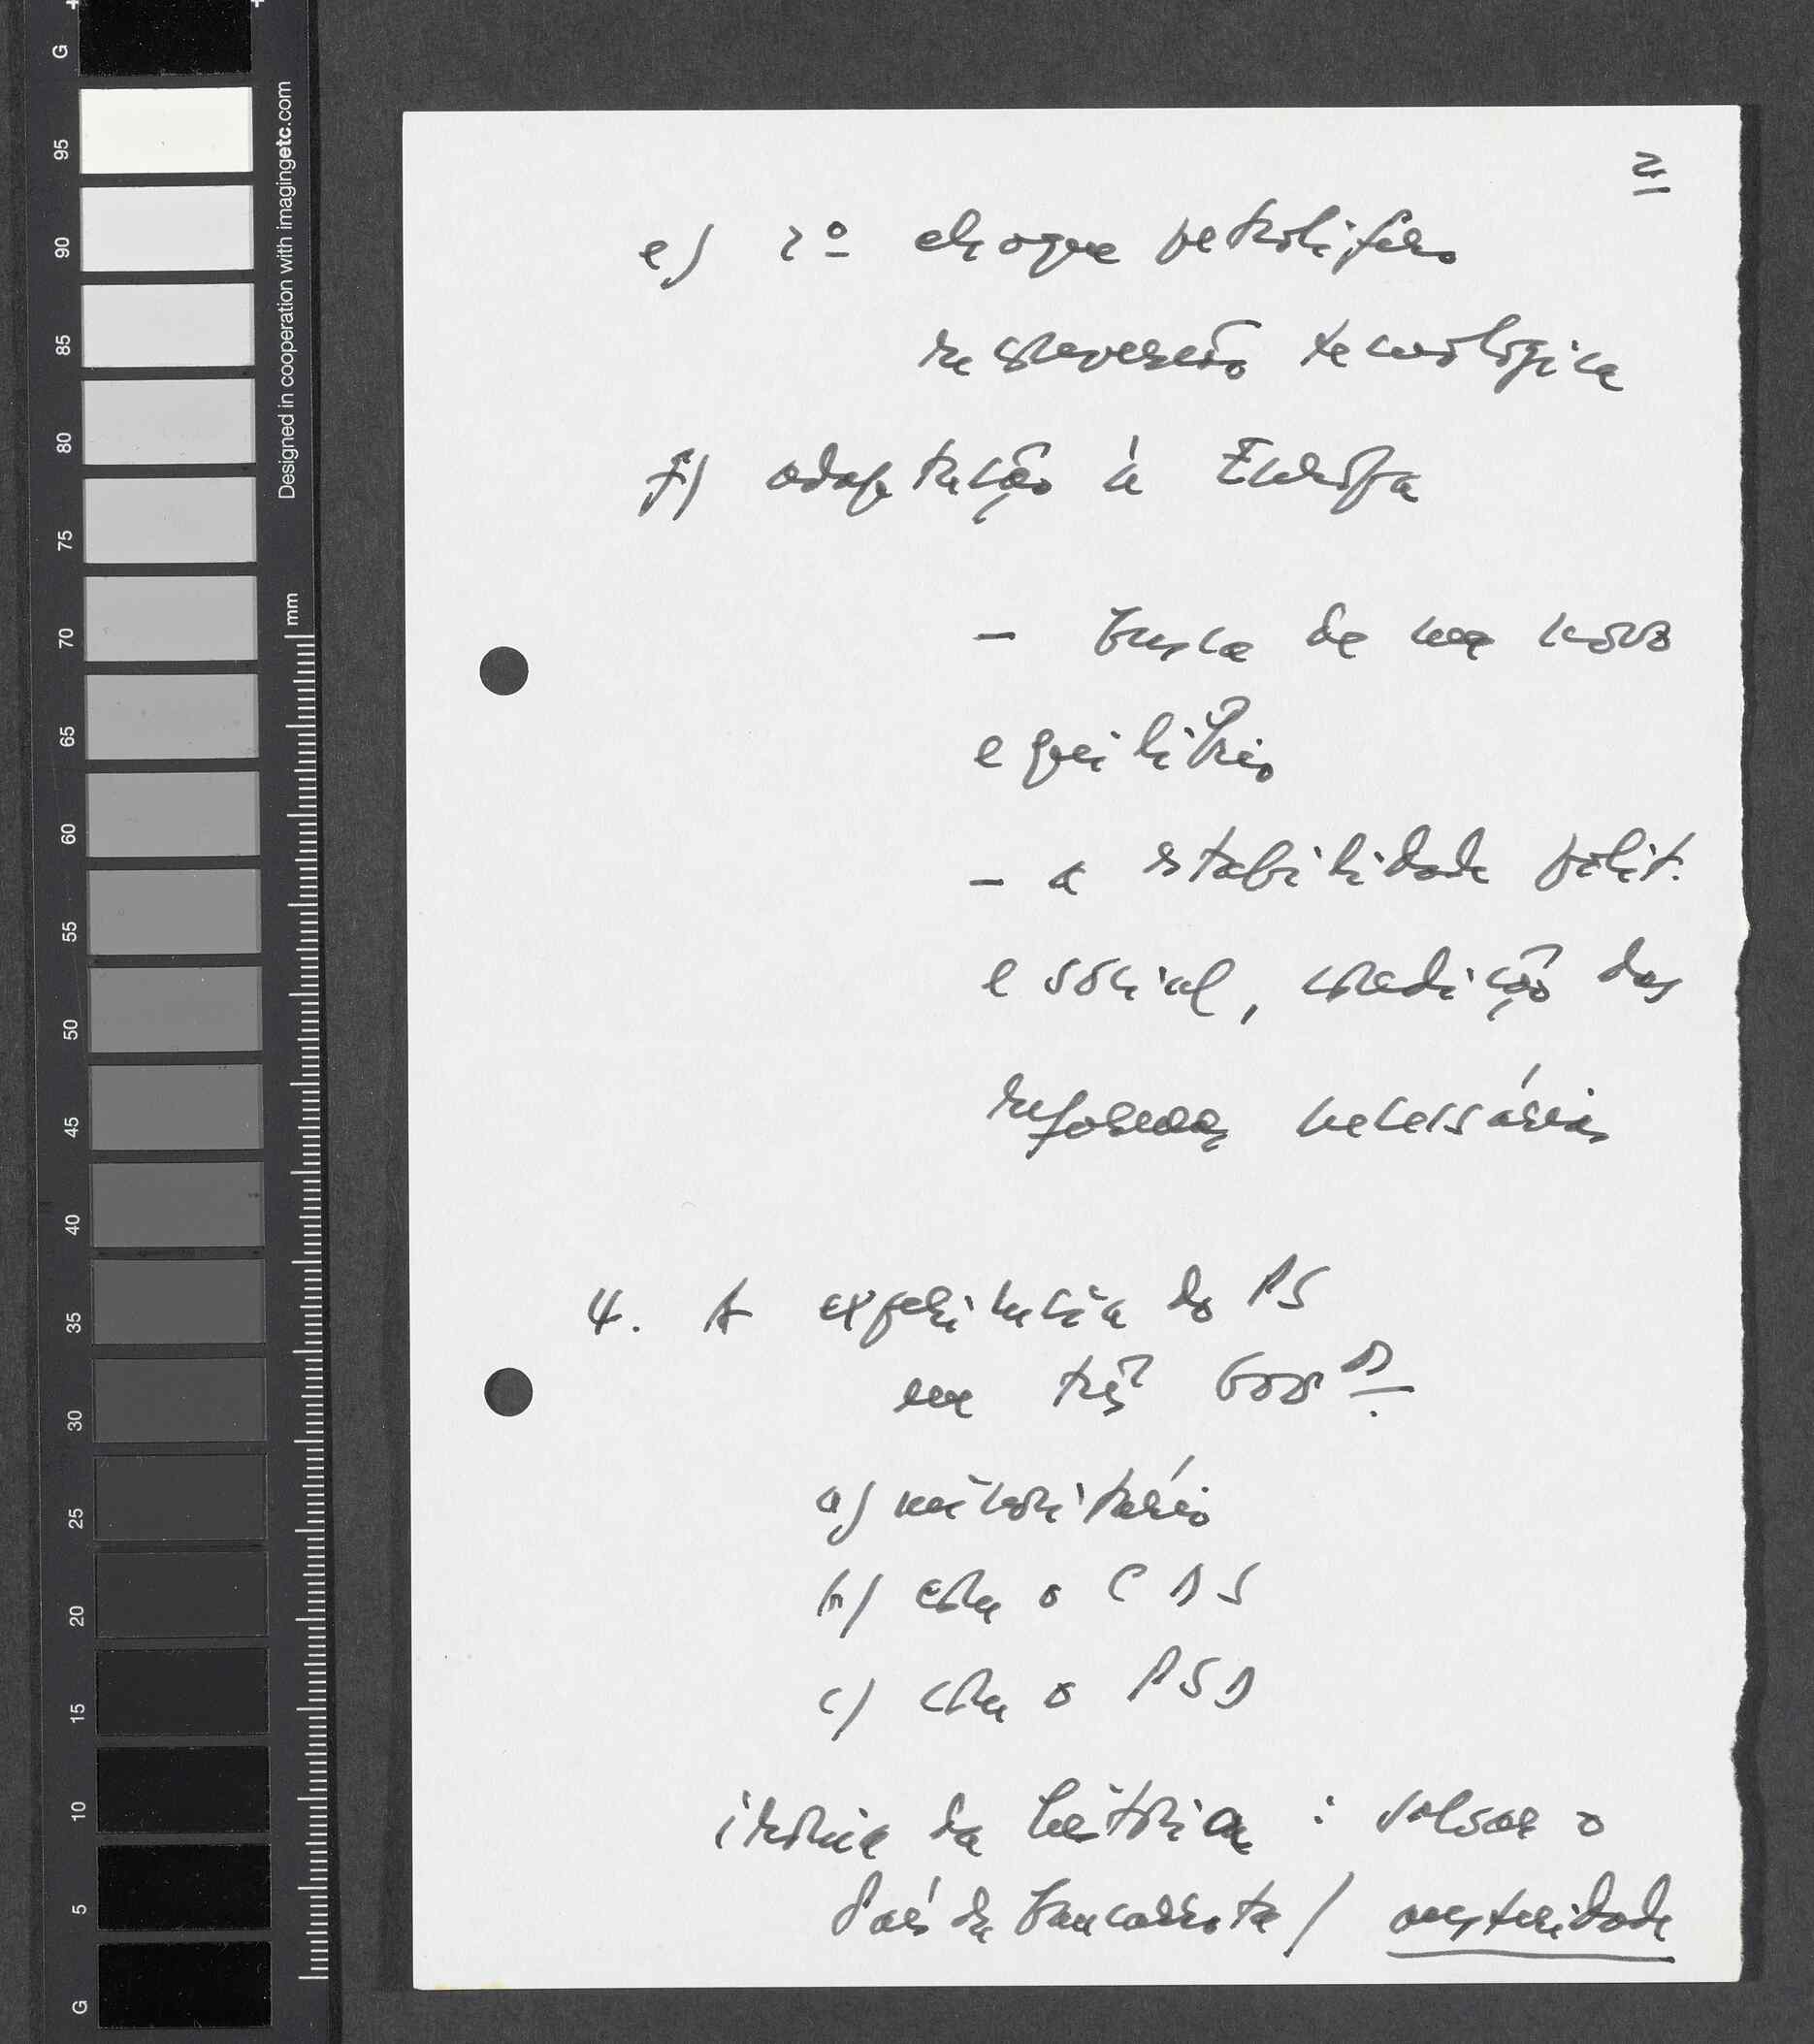 2.
e) 2º choque petrolífero
reconversão tecnológica
f) adaptação à Europa
- busca de um novo
equilíbrio
- a estabilidade polit.
e social, condição das
reformas necessárias
4. A experiência do PS
em três Gov.
a) minoritário
b) com o CDS
c) com o PSD
ironia da história : salvar o
País da bancarrota / austeridade
G
95
90
85
80
75
70
65
60
55
50
45
40
35
30
25
20
15
10
5
G
Designed in cooperation with imagingetc.com
mm